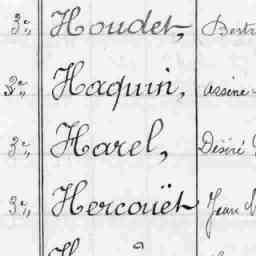 3e,, Houdet, Dest
3e,, Haquin, Arsène
3e,, Harel, Désiré
3e,, Hercouët Jean